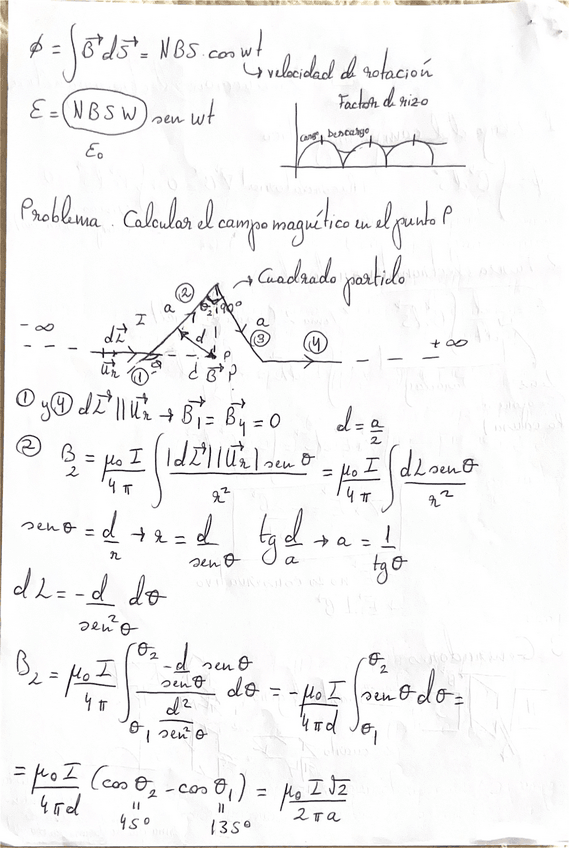 ϕ = ∫ B⃗ dS⃗ = NBS · cos wt
↳ velocidad de rotación
Ɛ = (NBSW) sen wt
Ɛ₀
Factor de rizo
carga descarga
Problema. Calcular el campo magnético en el punto P
→ Cuadrado partido
② a θ₂ 90°
- ∞ dL⃗ I d a ③ ④ + ∞
u⃗r ① d B⃗ P P
① y ④ dL⃗ || U⃗r → B⃗₁ = B⃗₄ = 0 d = a/2
② B₂ = μ₀ I/4π ∫ |dL⃗||U⃗r| sen θ/r² = μ₀ I/4π ∫ dL sen θ/r²
sen θ = d/r → r = d/sen θ tg d/a → a = 1/tg θ
dL = - d/sen² θ dθ
B₂ = μ₀ I/4π ∫θ₁^θ₂ (-d/sen θ sen θ)/(d²/sen² θ) dθ = - μ₀ I/4πd ∫θ₁^θ₂ sen θ dθ =
= μ₀ I/4πd (cos θ₂ - cos θ₁) = μ₀ I √2/2πa
45° 135°